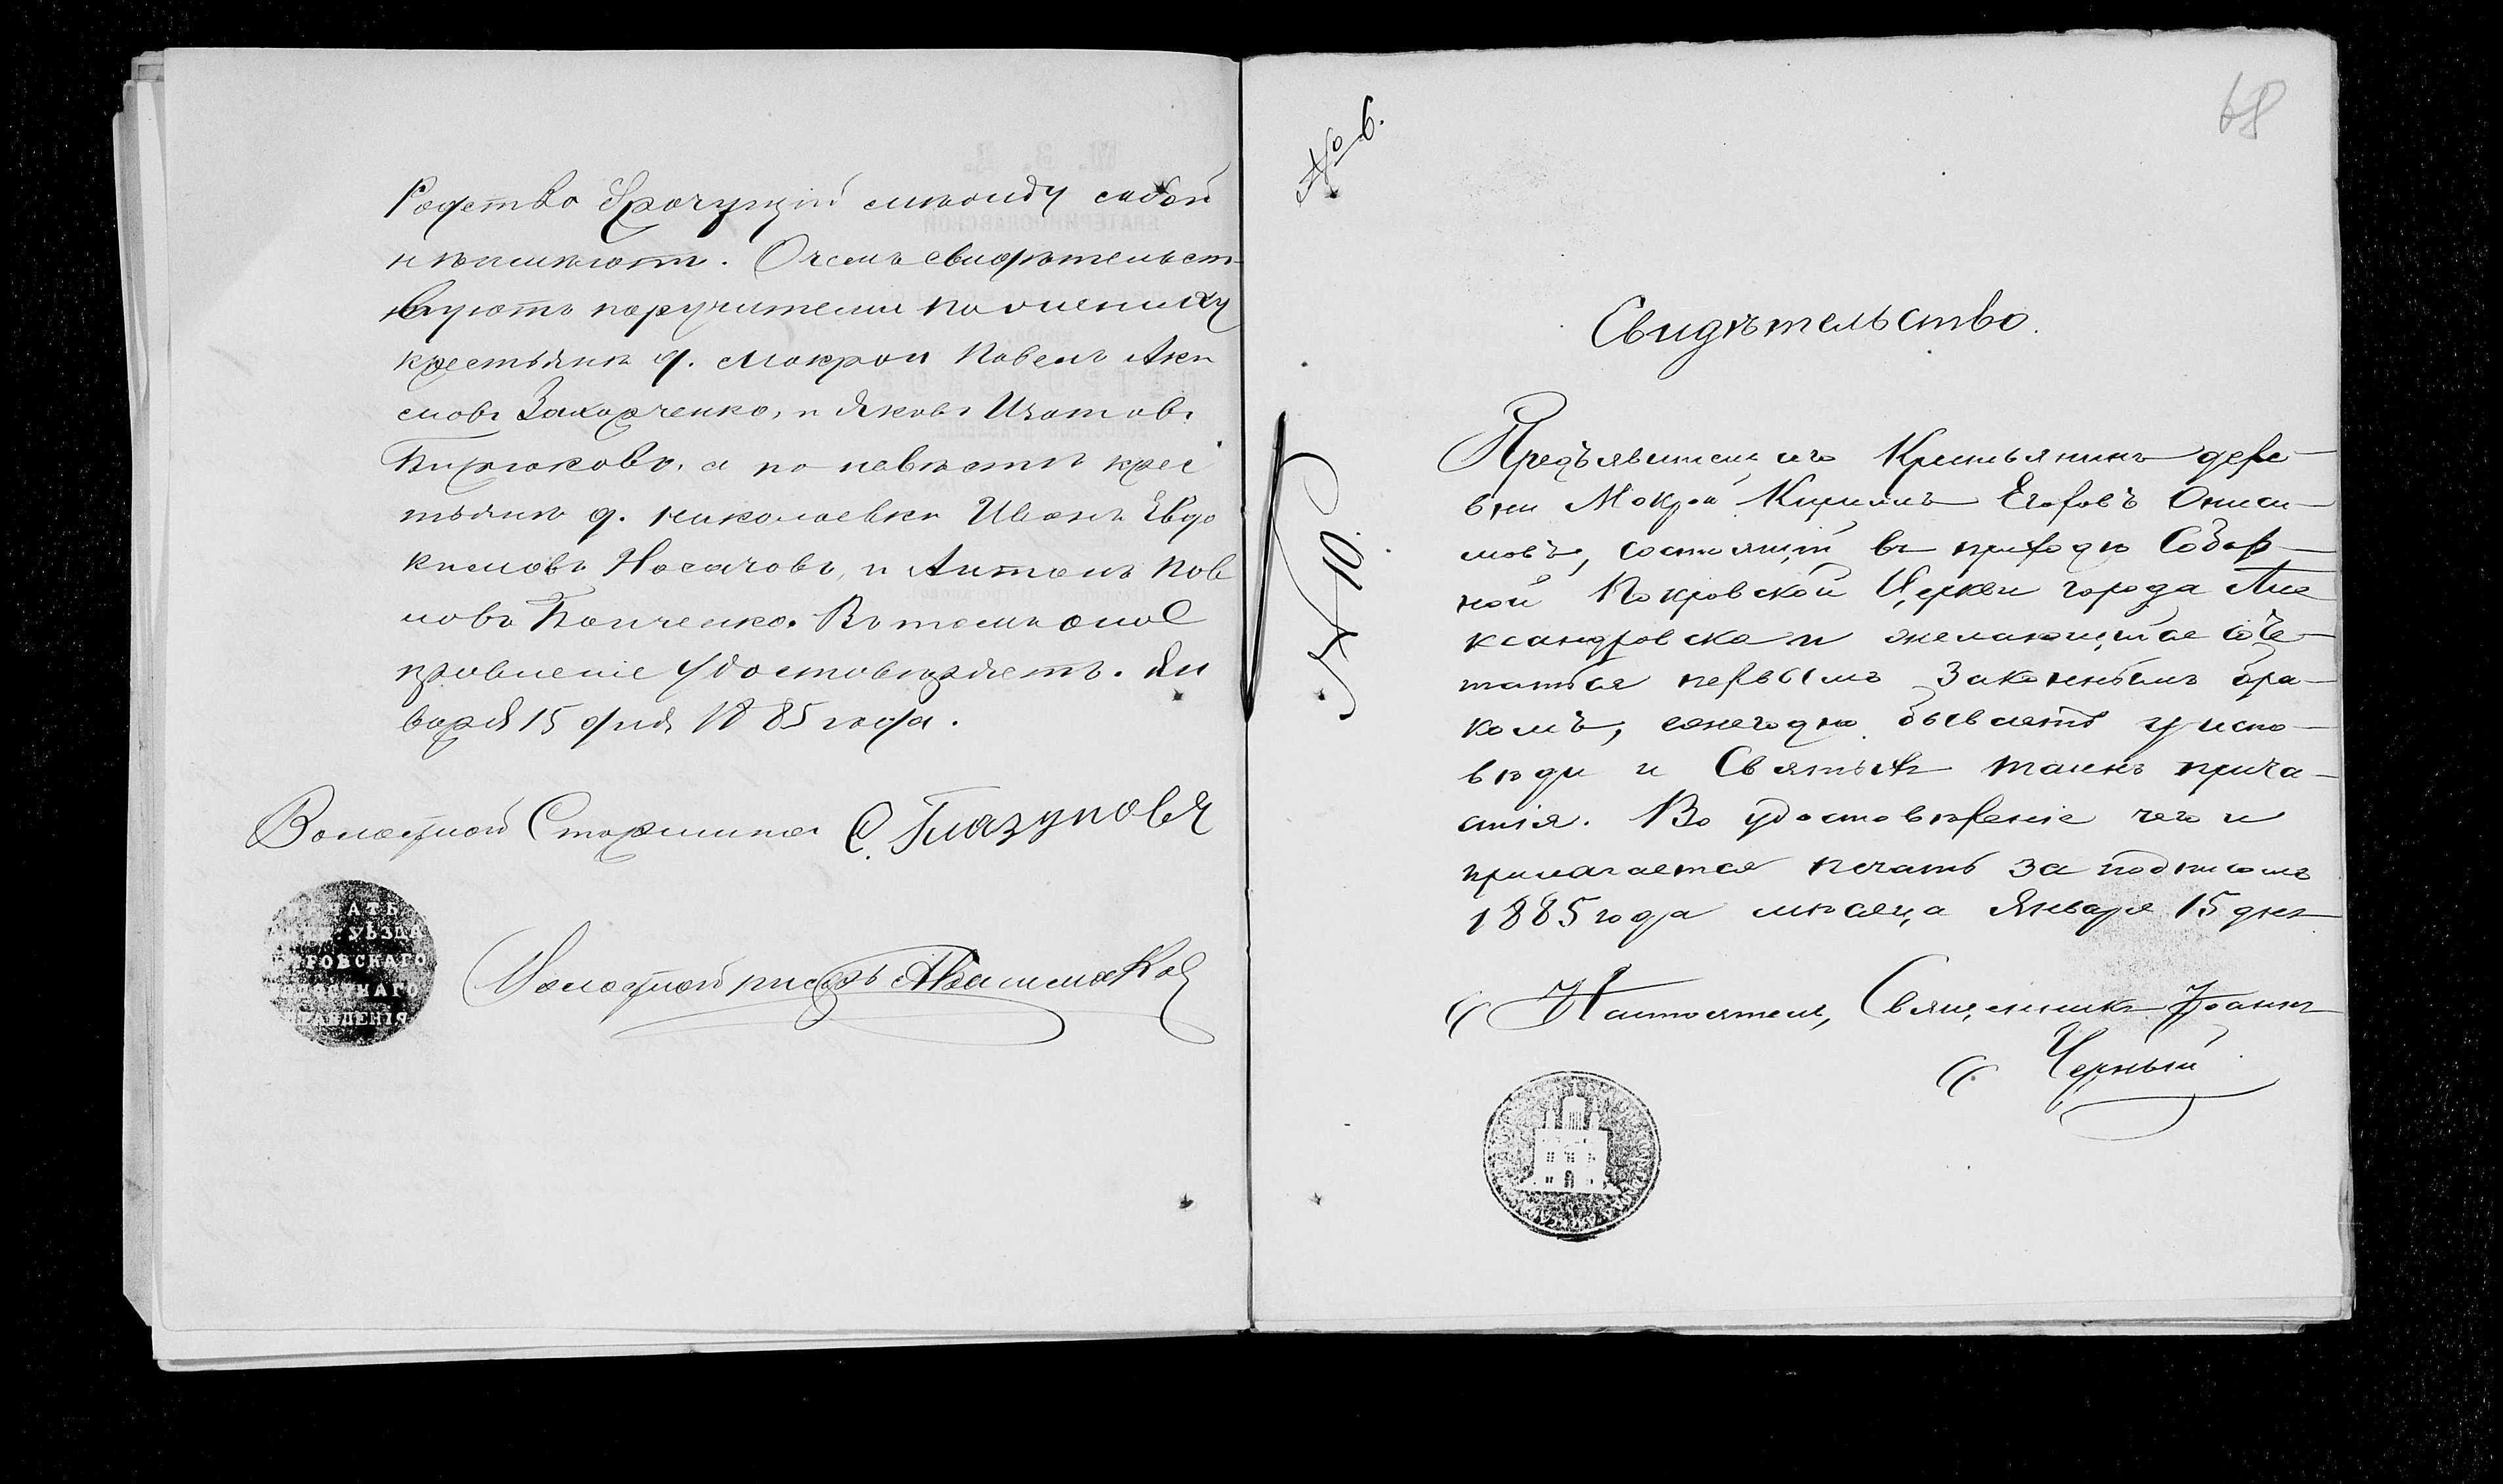 Родство Брачущiй между собой
неимеютъ. Очемъ свидѣтельст-
вуютъ поручители по жениху
крестьяне д. Мокрой Павелъ Аки
мовъ Захарченко, и Яковъ Изотовъ
Бирюковъ, а по невѣстѣ крес
тьяне д. Николаевки Иванъ Евдо
кимовъ Носачовъ, и Антонъ Пав
ловъ Панченко. Въ томъ оное
правленiе удостовѣряетъ. Ян
варя 15 дня 1885 года.
Волостной Старшина С. Глазуновъ
ПЕЧАТЬ
УѢЗДА
ПРАВЛЕНIЯ
Волостной писарь
68
№ 6.
№ 10.
Свидѣтельство.
Предъявитель сего Крестьянинъ дере-
вни Мокрой Кирилъ Егоровъ Ониси-
мовъ, состоящiй въ приходѣ Собор-
ной Покровской Церкви города Але
ксандровска и желающiйся соче-
таться первымъ Законнымъ бра-
комъ, ежегодно бываетъ у испо-
вѣди и Святыхъ таинъ прича-
стiя. Во удостовѣренiе чего и
прилагается печать за подписомъ
1885 года мѣсяца Января 15 дня
Настоятель, Священникъ Iоаннъ
Черный